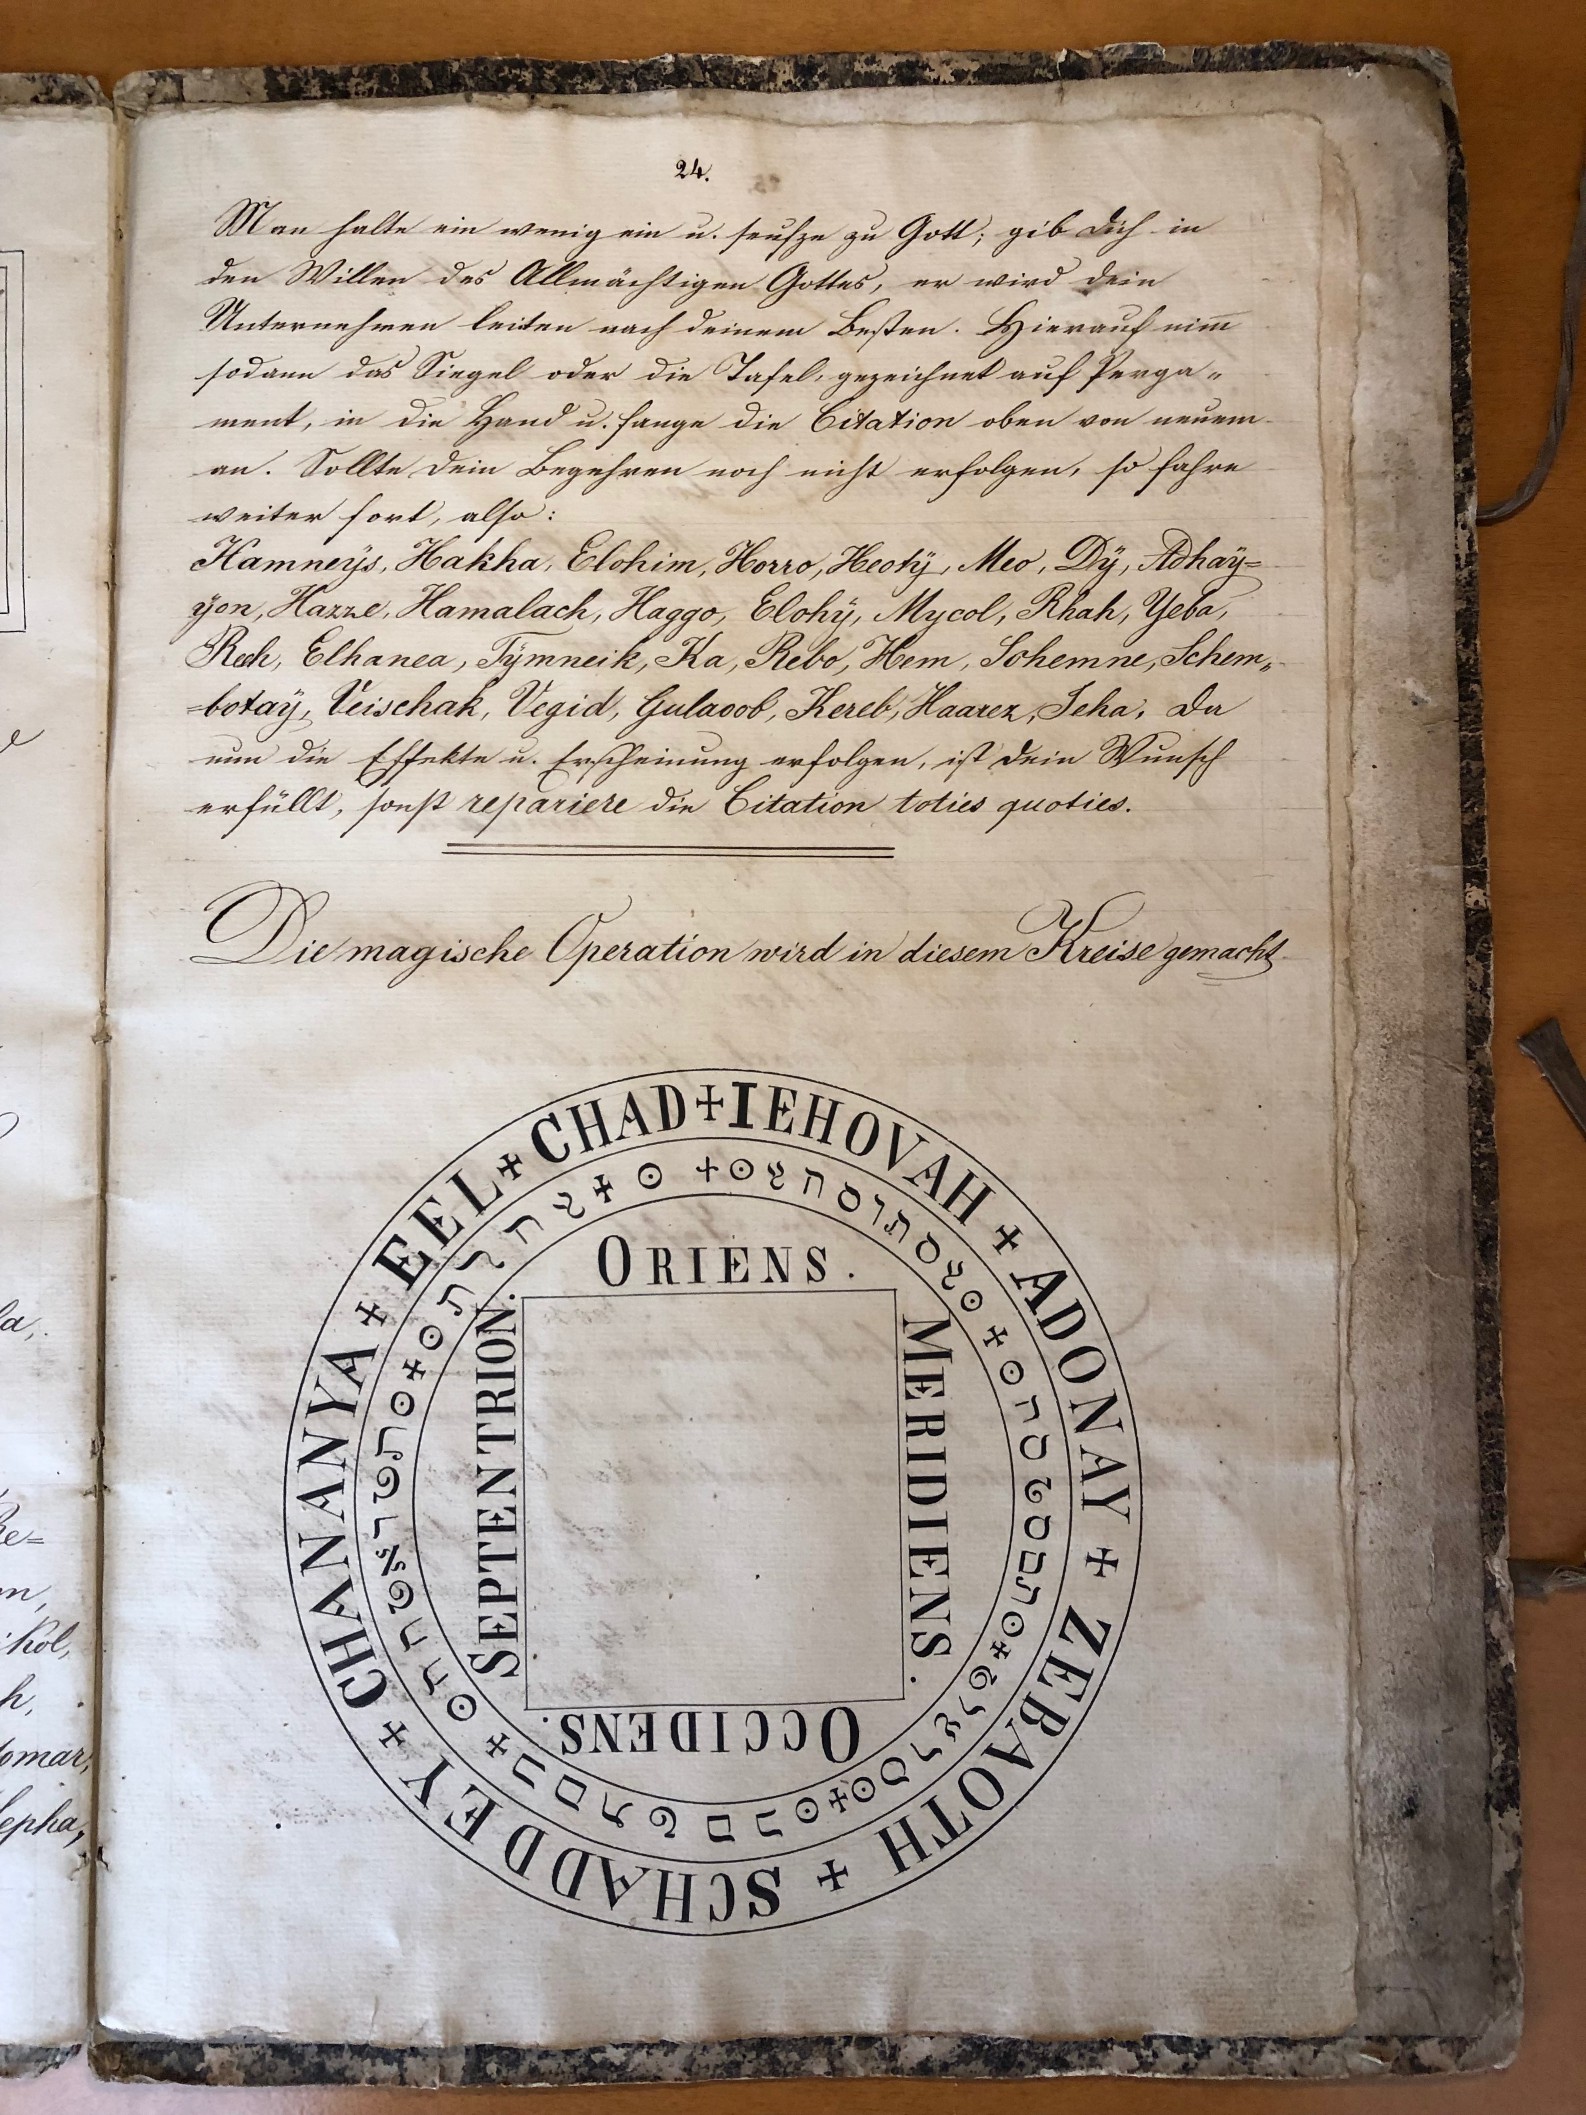 24.
Man halte ein wenig ein u. seufze zu Gott; gib dich in
den Willen des Allmächtigen Gottes, er wird dein
Unternehmen leiten nach deinem Besten. Hierauf nim̅
sodann das Siegel oder die Tafel, gezeichnet auf Perga„
ment, in die Hand u. fange die Citation oben von neuem
an. Sollte dein Begehren noch nicht erfolgen, so fahre
weiter fort, also:
Hamneÿs, Hakha, Elohim, Horro, Heotÿ, Meo, Dÿ, Adhaÿ=
ÿon, Hazze, Hamalach, Haggo, Elohÿ, Mycol, Rhah, Yeba,
Rech, Elhanea, Tÿmneik, Ka, Rebo, Hem, Sohemne, Schem„
=botaÿ, Veischak, Vegid, Gulaoob, Kereb, Haarez, Jeha, da
nun die Effekte u. Erscheinung erfolgen, ist dein Wunsch
erfüllt, sonst repariere die Citation toties quoties.
Die magische Operation wird in diesem Kreise gemacht
IEHOVAH + ADONAY + ZEBAOTH + SCHADDEY + CHANANYA + EEL + CHAD +
ORIENS.
MERIDIENS.
OCCIDENS.
SEPTENTRION.
la,
Re=
n,
Kol,
h,
omar,
epha,